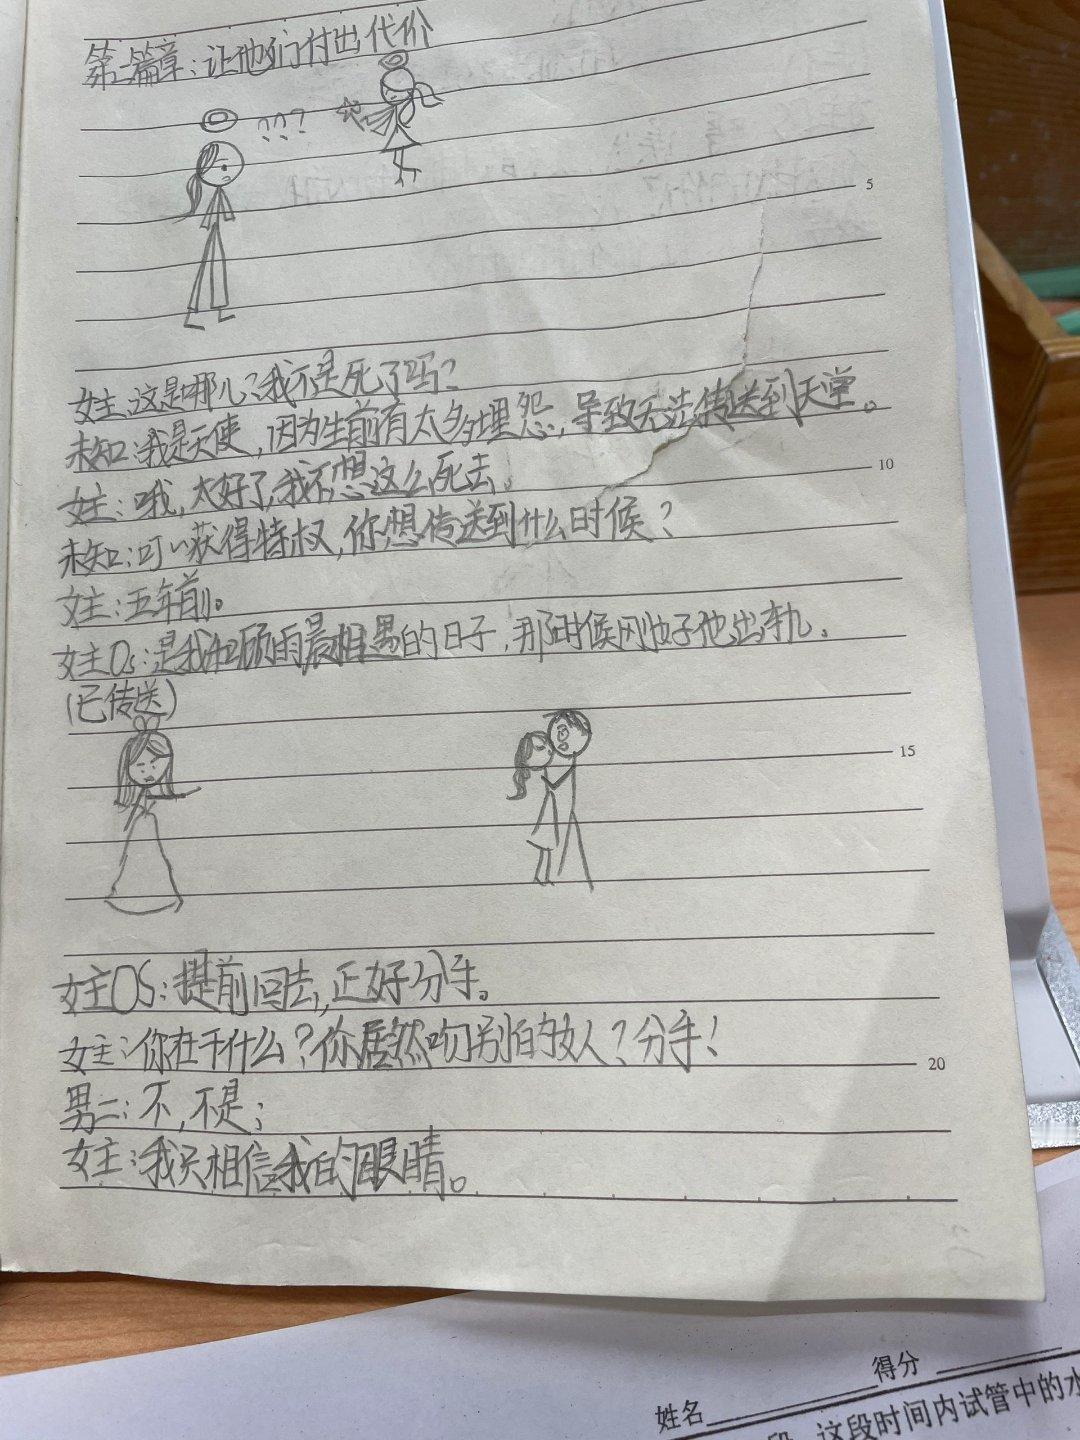 第二篇章:让他们付出代价
???
5
女主:这是哪儿?我不是死了吗?
未知:我是天使,因为生前有太多埋怨,导致无法传送到天堂。
女主:哦,太好了,我不想这么死去。
10
未知:可以获得特权,你想传送到什么时候?
女主:五年前。
女主Os:是我和顾雨晨相遇的日子,那时候刚他出轨。
(已传送)
15
女主OS:提前回去,正好分手。
女主:你在干什么?你居然吻别的女人?分手!
20
男二:不,不是;
女主:我只相信我的眼睛。
得分
姓名
段,这段时间内试管中的水